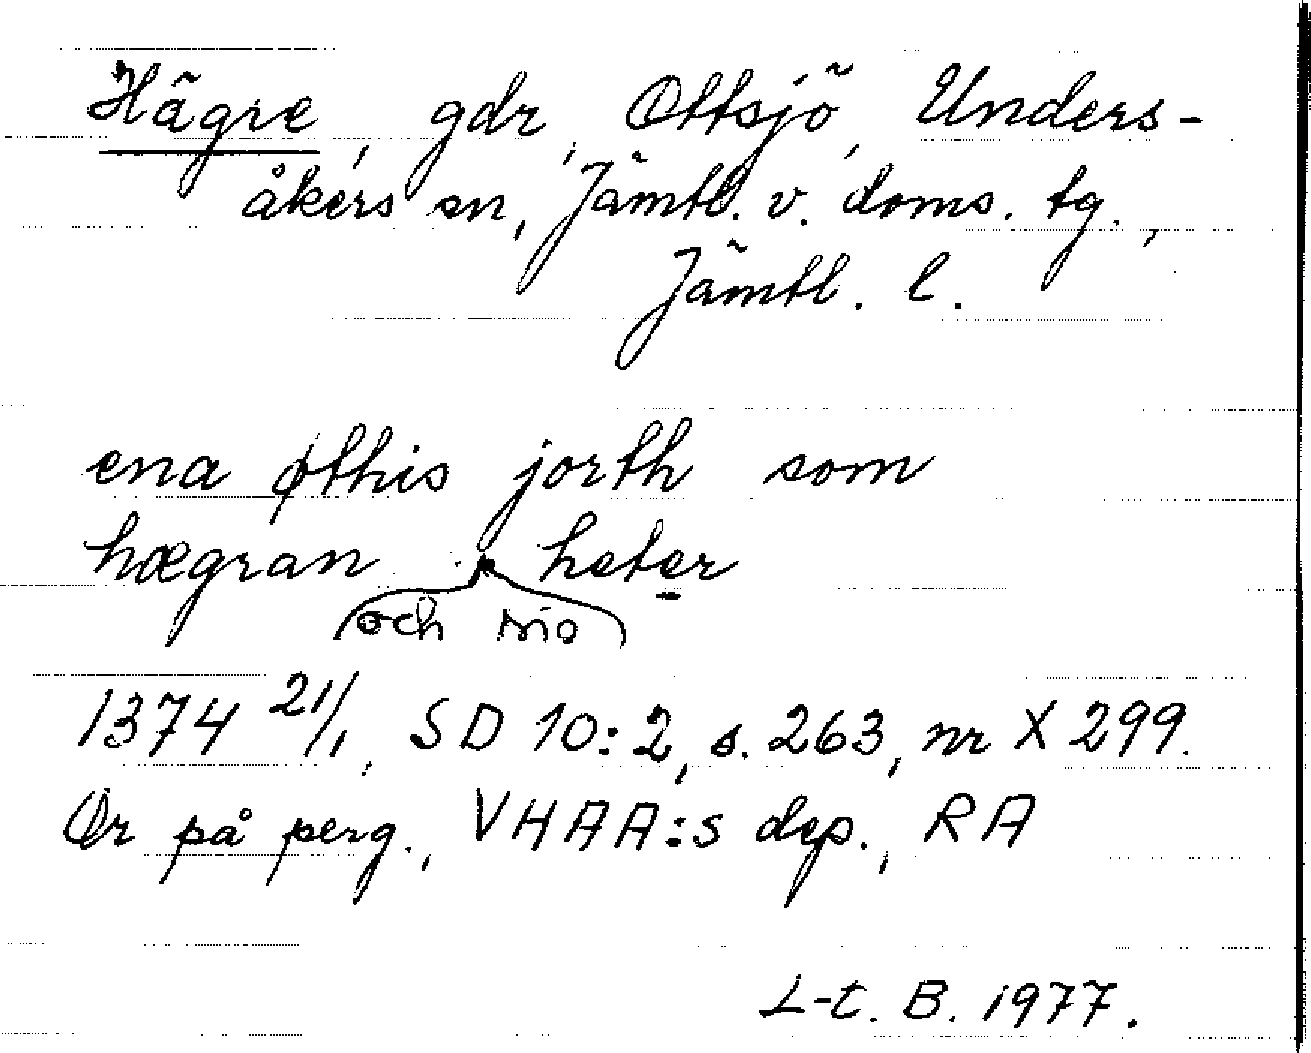 Hägre, gdr, Ottsjö, Unders-
åkers sn, Jämtl. v. doms. tg.,
Jämtl. l.
ena øthis jorth som
hægran heter
och rio
1374 21/1, SD 10:2, s. 263, nr X 299.
Or på perg., VHAA:s dep., RA
L-t. B. 1977.